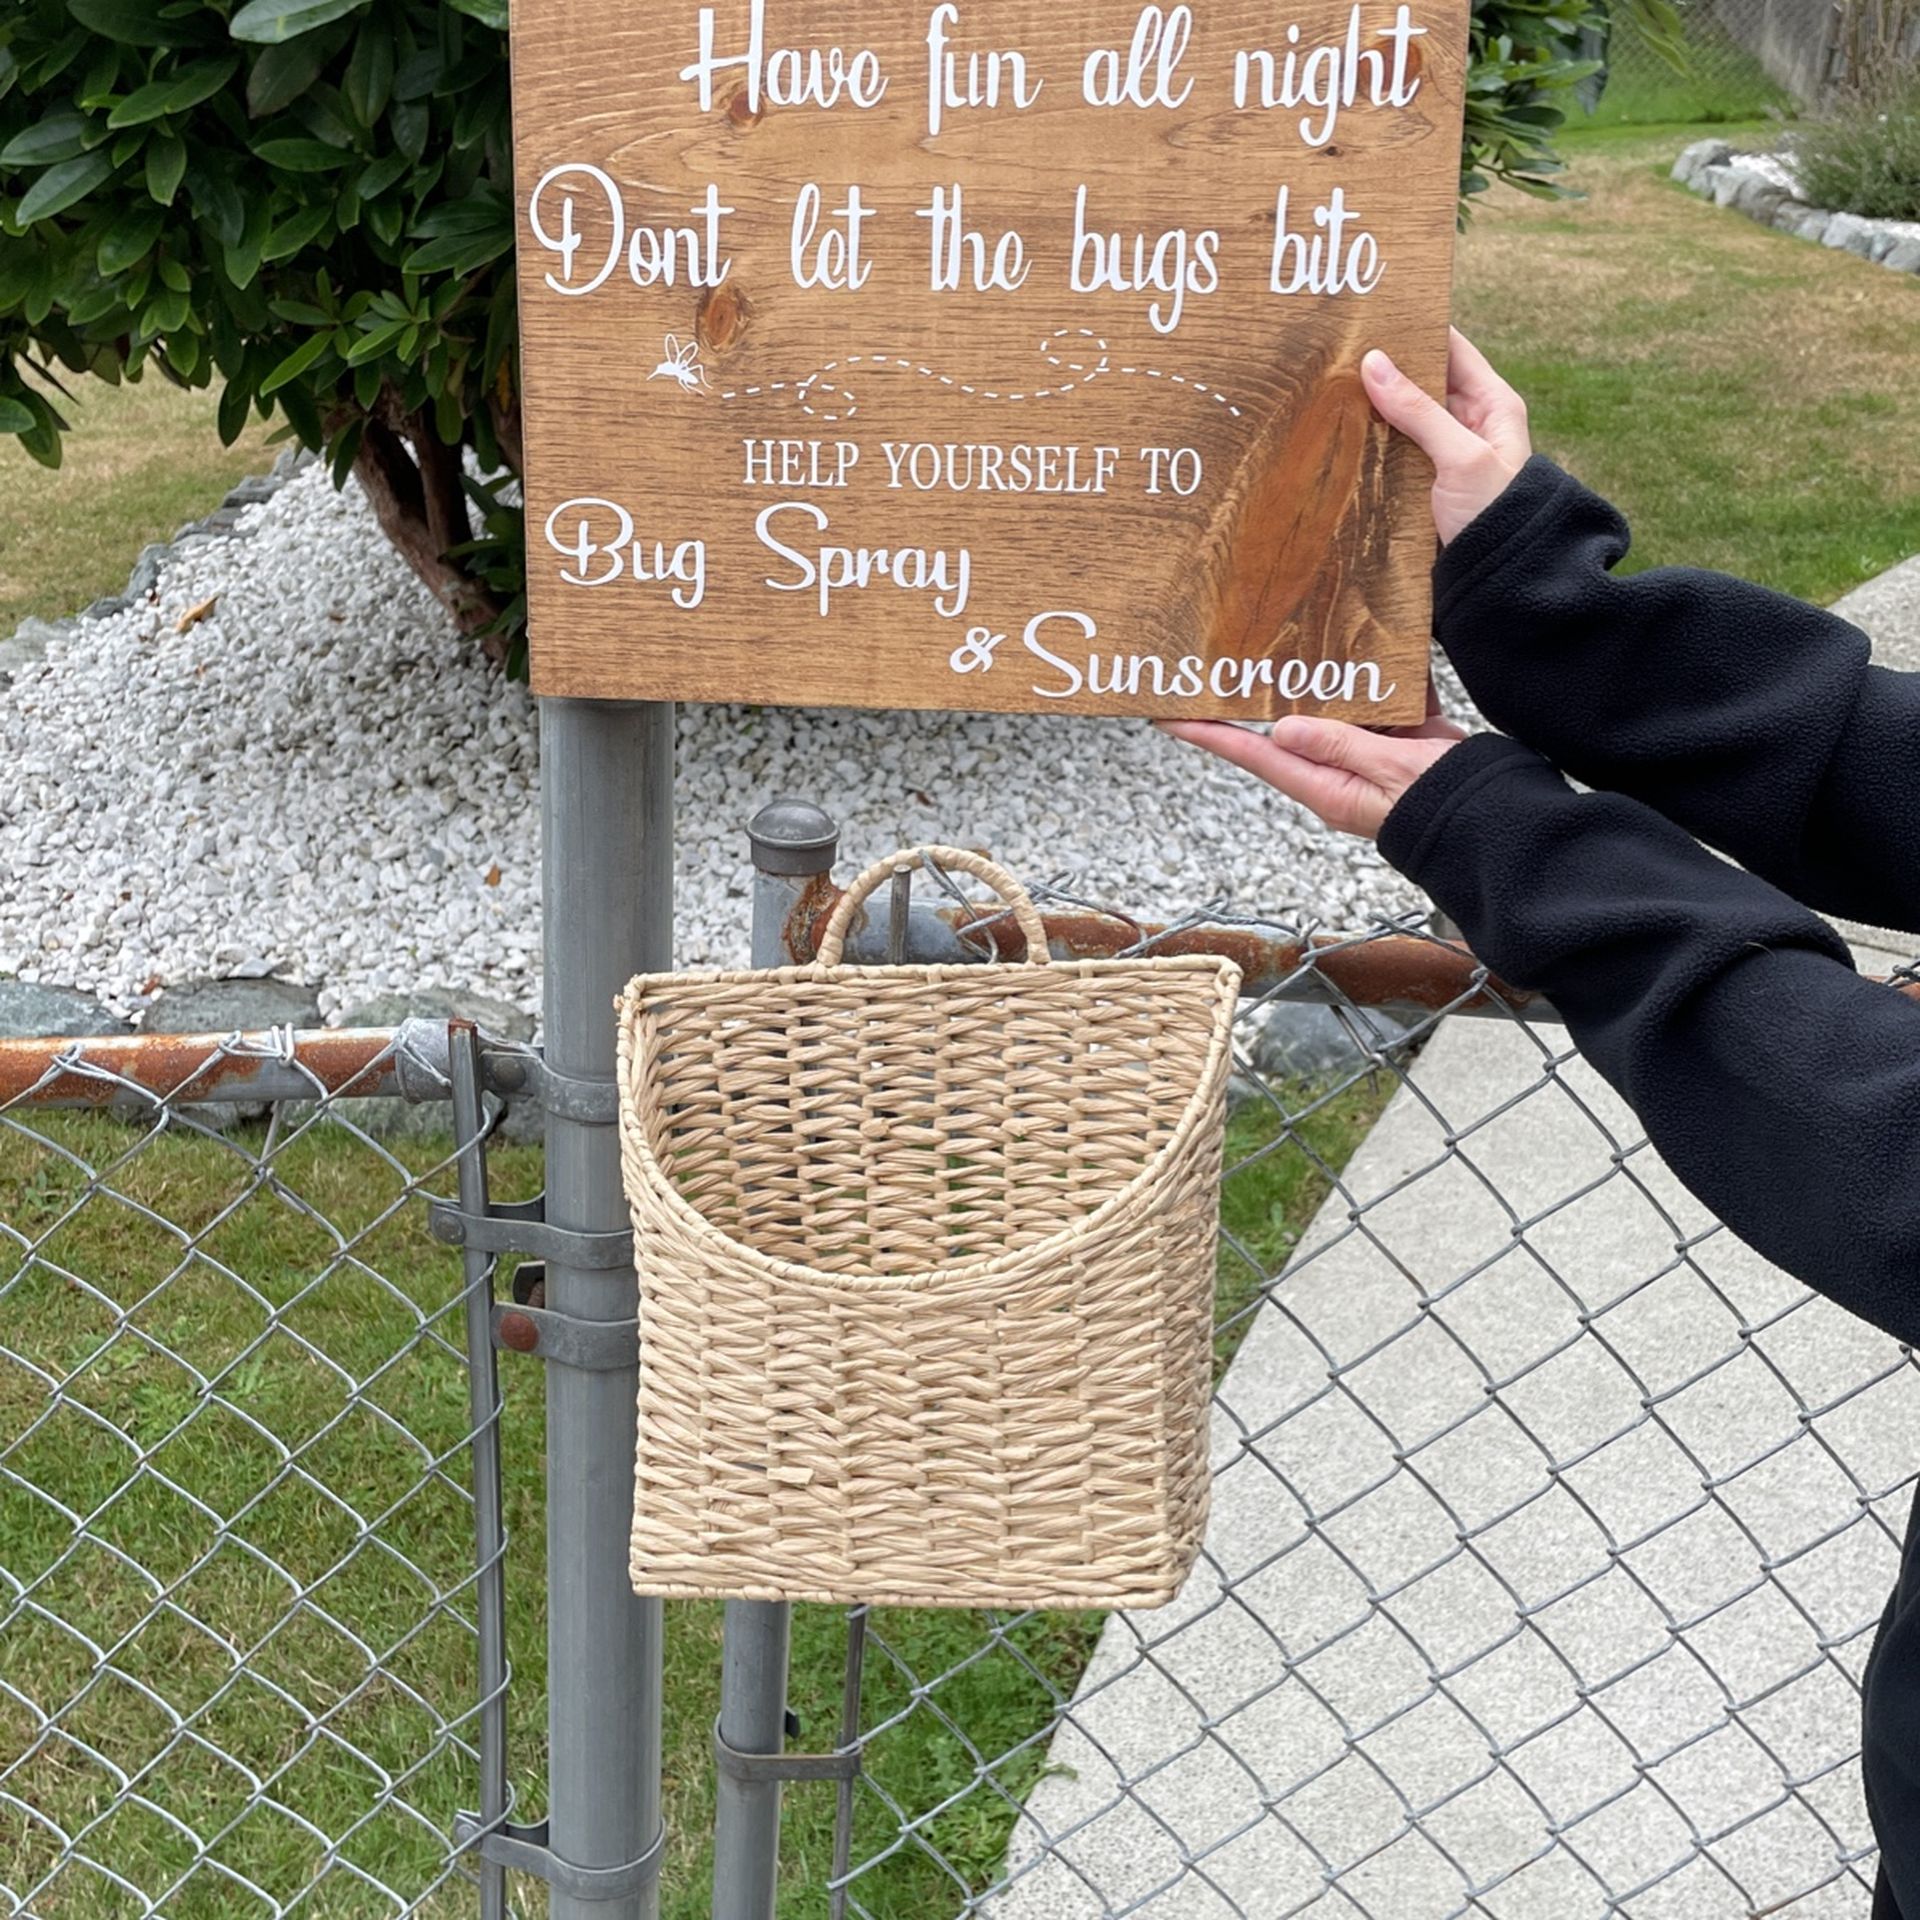 Have fun all night
Dont let the bugs bite
HELP YOURSELF TO
Bug Spray
& Sunscreen